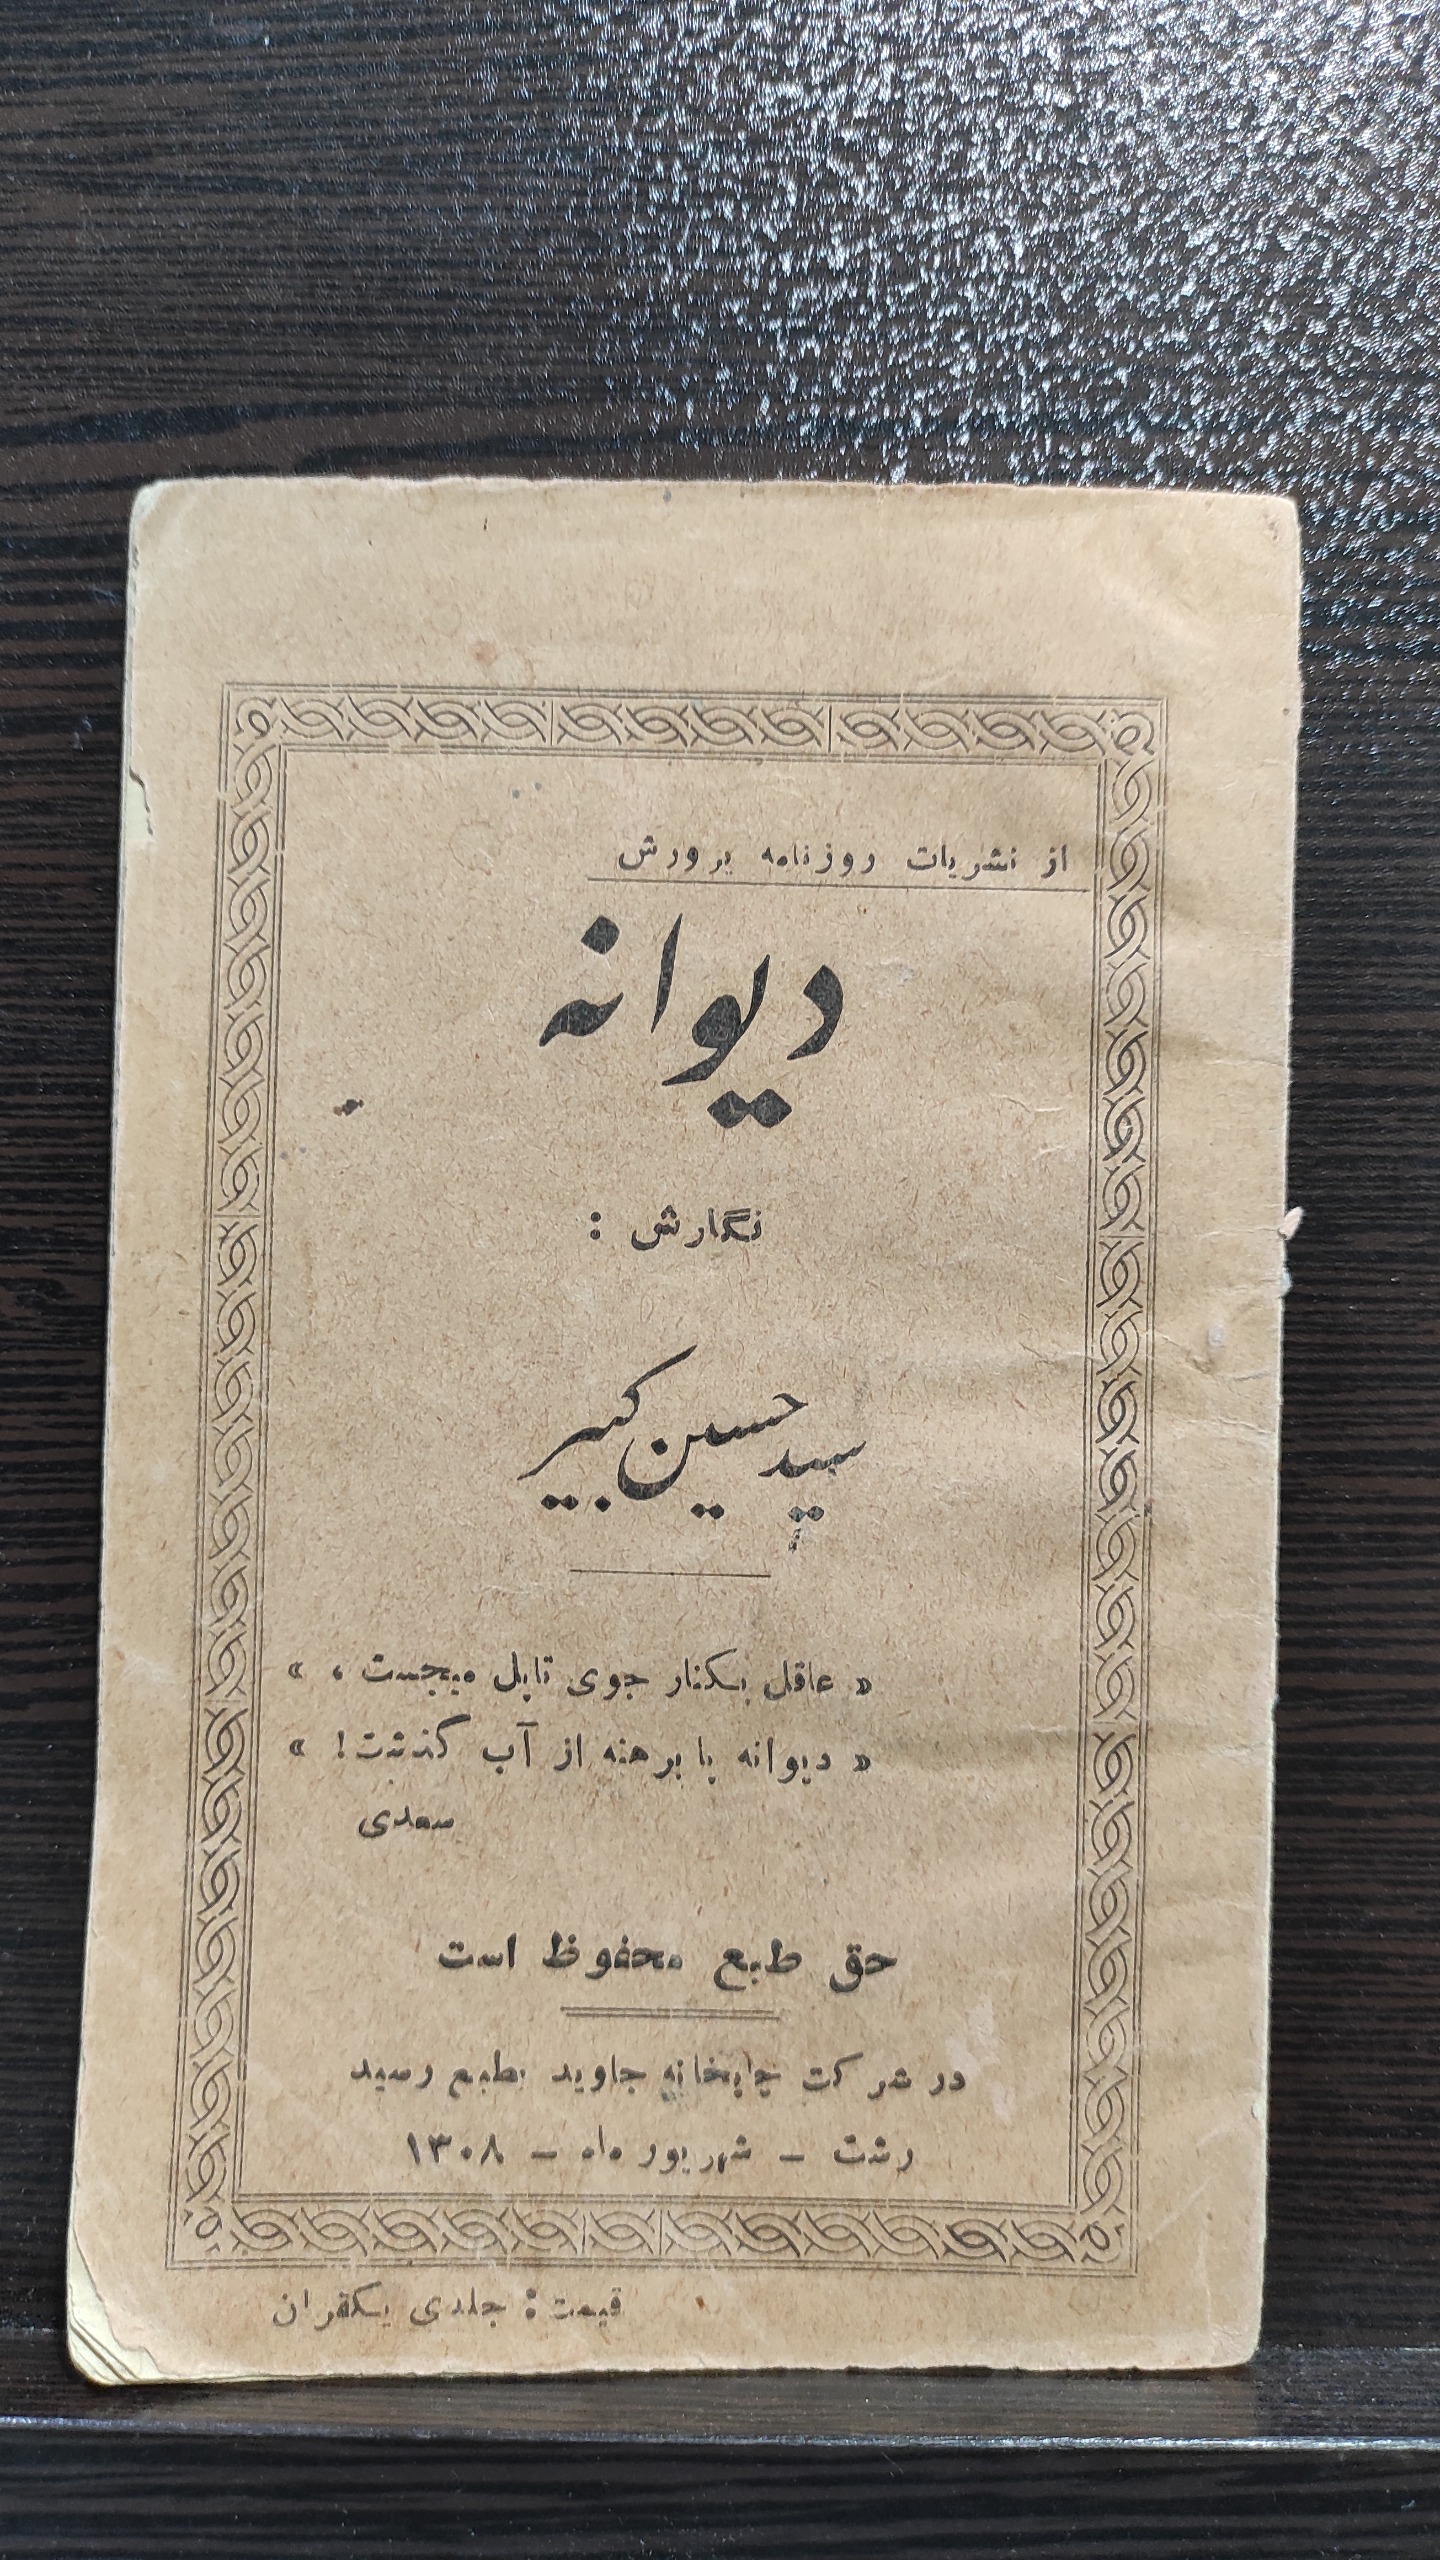 از نشریات روزنامه پرورش
دیوانه
نگارش :
سید حسین کبیر
« عاقل بکنار جوی تاپل میجست ، »
« دیوانه پا برهنه از آب گذشت! »
سعدی
حق طبع محفوظ است
در شرکت چاپخانه جاوید بطبع رسید
رشت – شهریور ماه – ۱۳۰۸
قیمت : جلدی یکقران